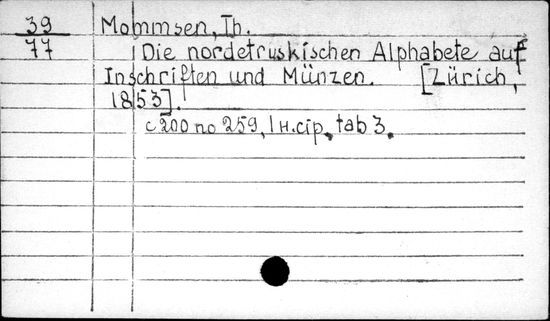 39 Mommsen, Th.
77 Die nordetruskischen Alphabete auf
Inschriften und Münzen. [Zürich,
1853].
c 200 no 259, 1 н.сір. tab 3.